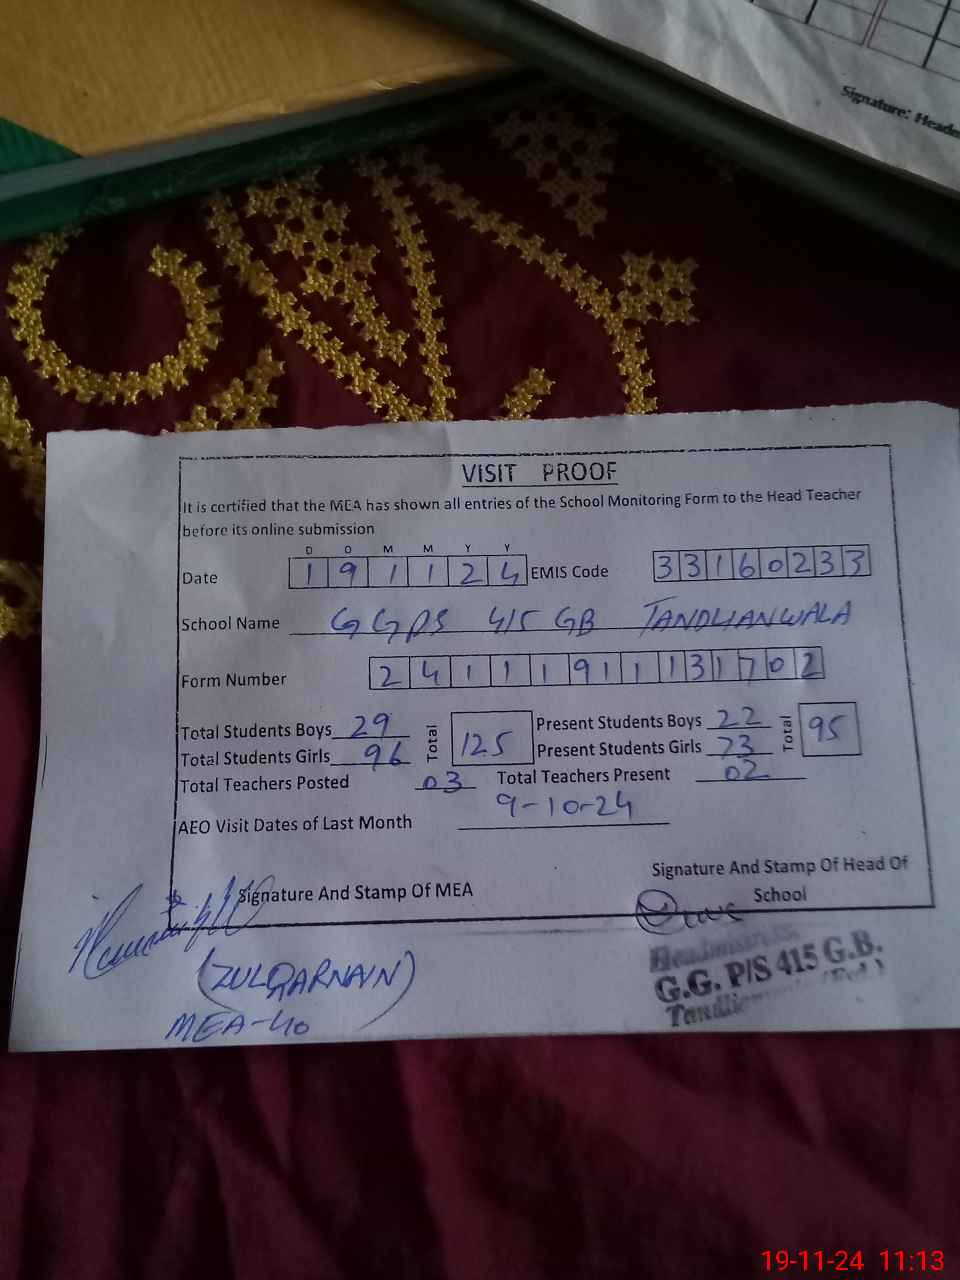 Signature: Headm
VISIT PROOF
It is certified that the MEA has shown all entries of the School Monitoring Form to the Head Teacher
before its online submission
D D M M Y Y
Date 1 9 1 1 2 4 EMIS Code 3 3 1 6 0 2 3 3
School Name GGPS 415 GB TANDLIANWALA
Form Number 2 4 1 1 1 9 1 1 1 3 1 7 0 2
Total Students Boys 29 Total 125 Present Students Boys 22 Total 95
Total Students Girls 96 Present Students Girls 73
Total Teachers Posted 03 Total Teachers Present 02
AEO Visit Dates of Last Month 9-10-24
Signature And Stamp Of MEA
Signature And Stamp Of Head Of
School
(ZULQARNAIN)
MEA-40
Headmistress
G.G. P/S 415 G.B.
19-11-24 11:13